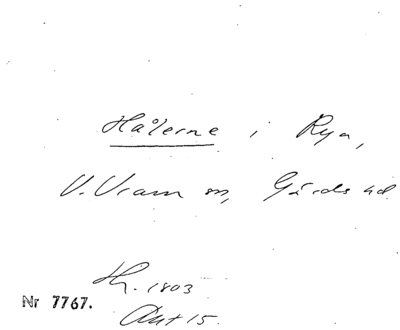 Hålerne i Rya,
V. Vram sn, Gärds hd
Hr. 1803
Nr 7767.
Ant 15.